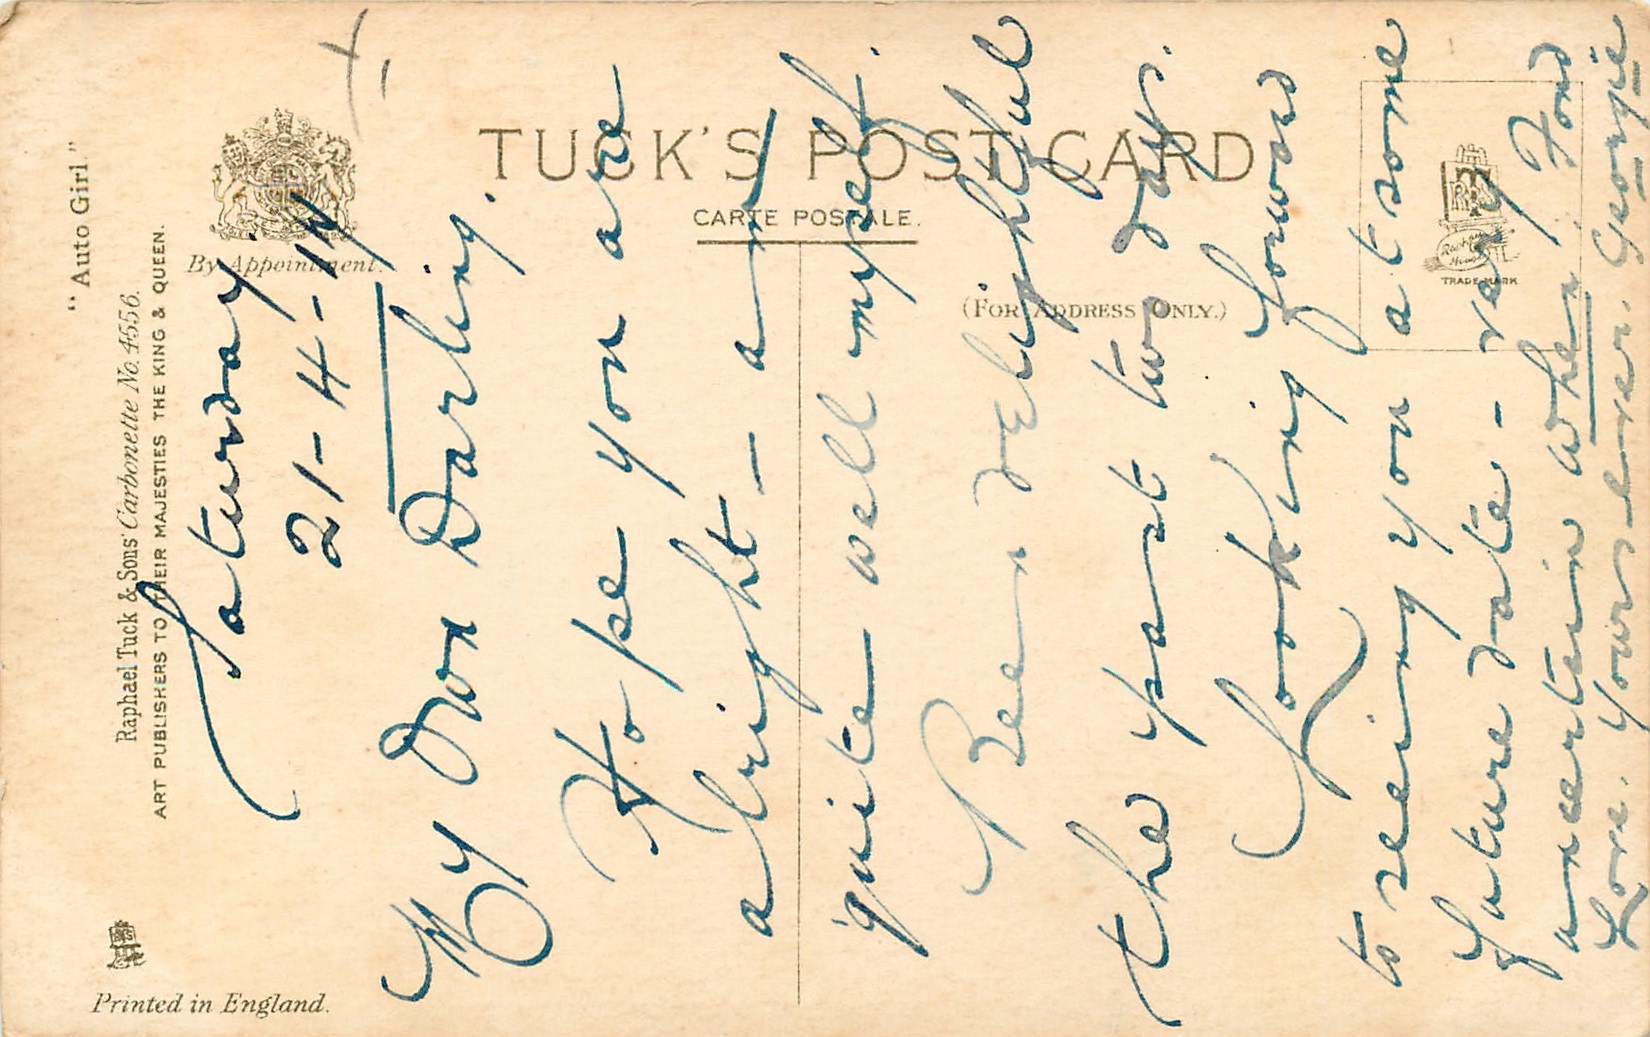 "Auto Girl."
Raphael Tuck & Sons' Carbonette No. 4556.
ART PUBLISHERS TO THEIR MAJESTIES THE KING & QUEEN.
Printed in England.
By Appointment.
TUCK'S POST CARD
CARTE POSTALE.
(FOR ADDRESS ONLY.)
TRADE MARK
Saturday.
21-4-17
My Own Darling.
Hope you are
alright - am
quite well myself.
Been delightful
the past two days.
Looking forward
to seeing you at some
future date - very
uncertain when! Fond
Love. Yours ever. Georgie